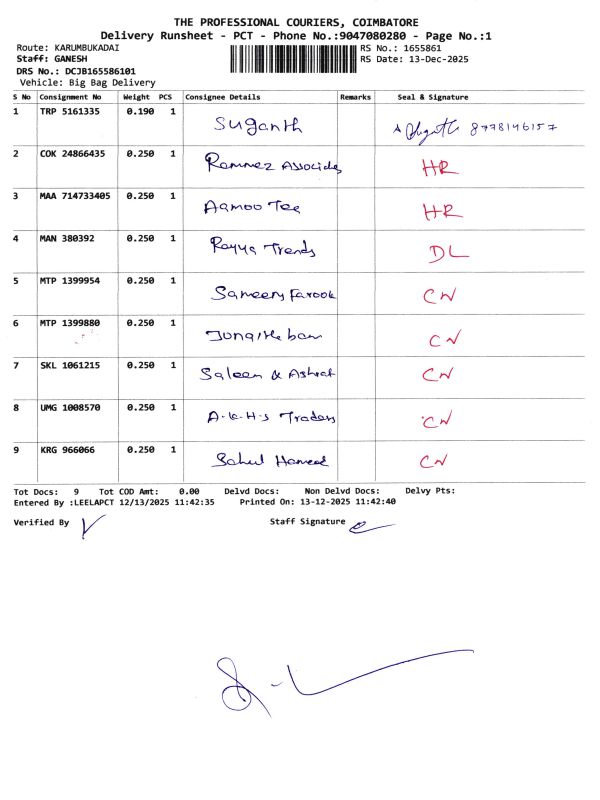 THE PROFESSIONAL COURIERS, COIMBATORE
Delivery Runsheet - PCT - Phone No.:9047080280 - Page No.:1
Route: KARUMBUKADAI RS No.: 1655861
Staff: GANESH RS Date: 13-Dec-2025
DRS No.: DCJB165586101
Vehicle: Big Bag Delivery
S No Consignment No Weight PCS Consignee Details Remarks Seal & Signature
1 TRP 5161335 0.190 1 Suganth 8778146157
2 COK 24866435 0.250 1 Ramnez Associates HR
3 MAA 714733405 0.250 1 Aamoo Tee HR
4 MAN 380392 0.250 1 Rayya Trends DL
5 MTP 1399954 0.250 1 Sameery Farook CN
6 MTP 1399880 0.250 1 CN
7 SKL 1061215 0.250 1 Saleem & Ashraf CN
8 UMG 1008570 0.250 1 A.K.H.S Traders CN
9 KRG 966066 0.250 1 Sahul Hameed CN
Tot Docs: 9 Tot COD Amt: 0.00 Delvd Docs: Non Delvd Docs: Delvy Pts:
Entered By :LEELAPCT 12/13/2025 11:42:35 Printed On: 13-12-2025 11:42:40
Verified By Staff Signature